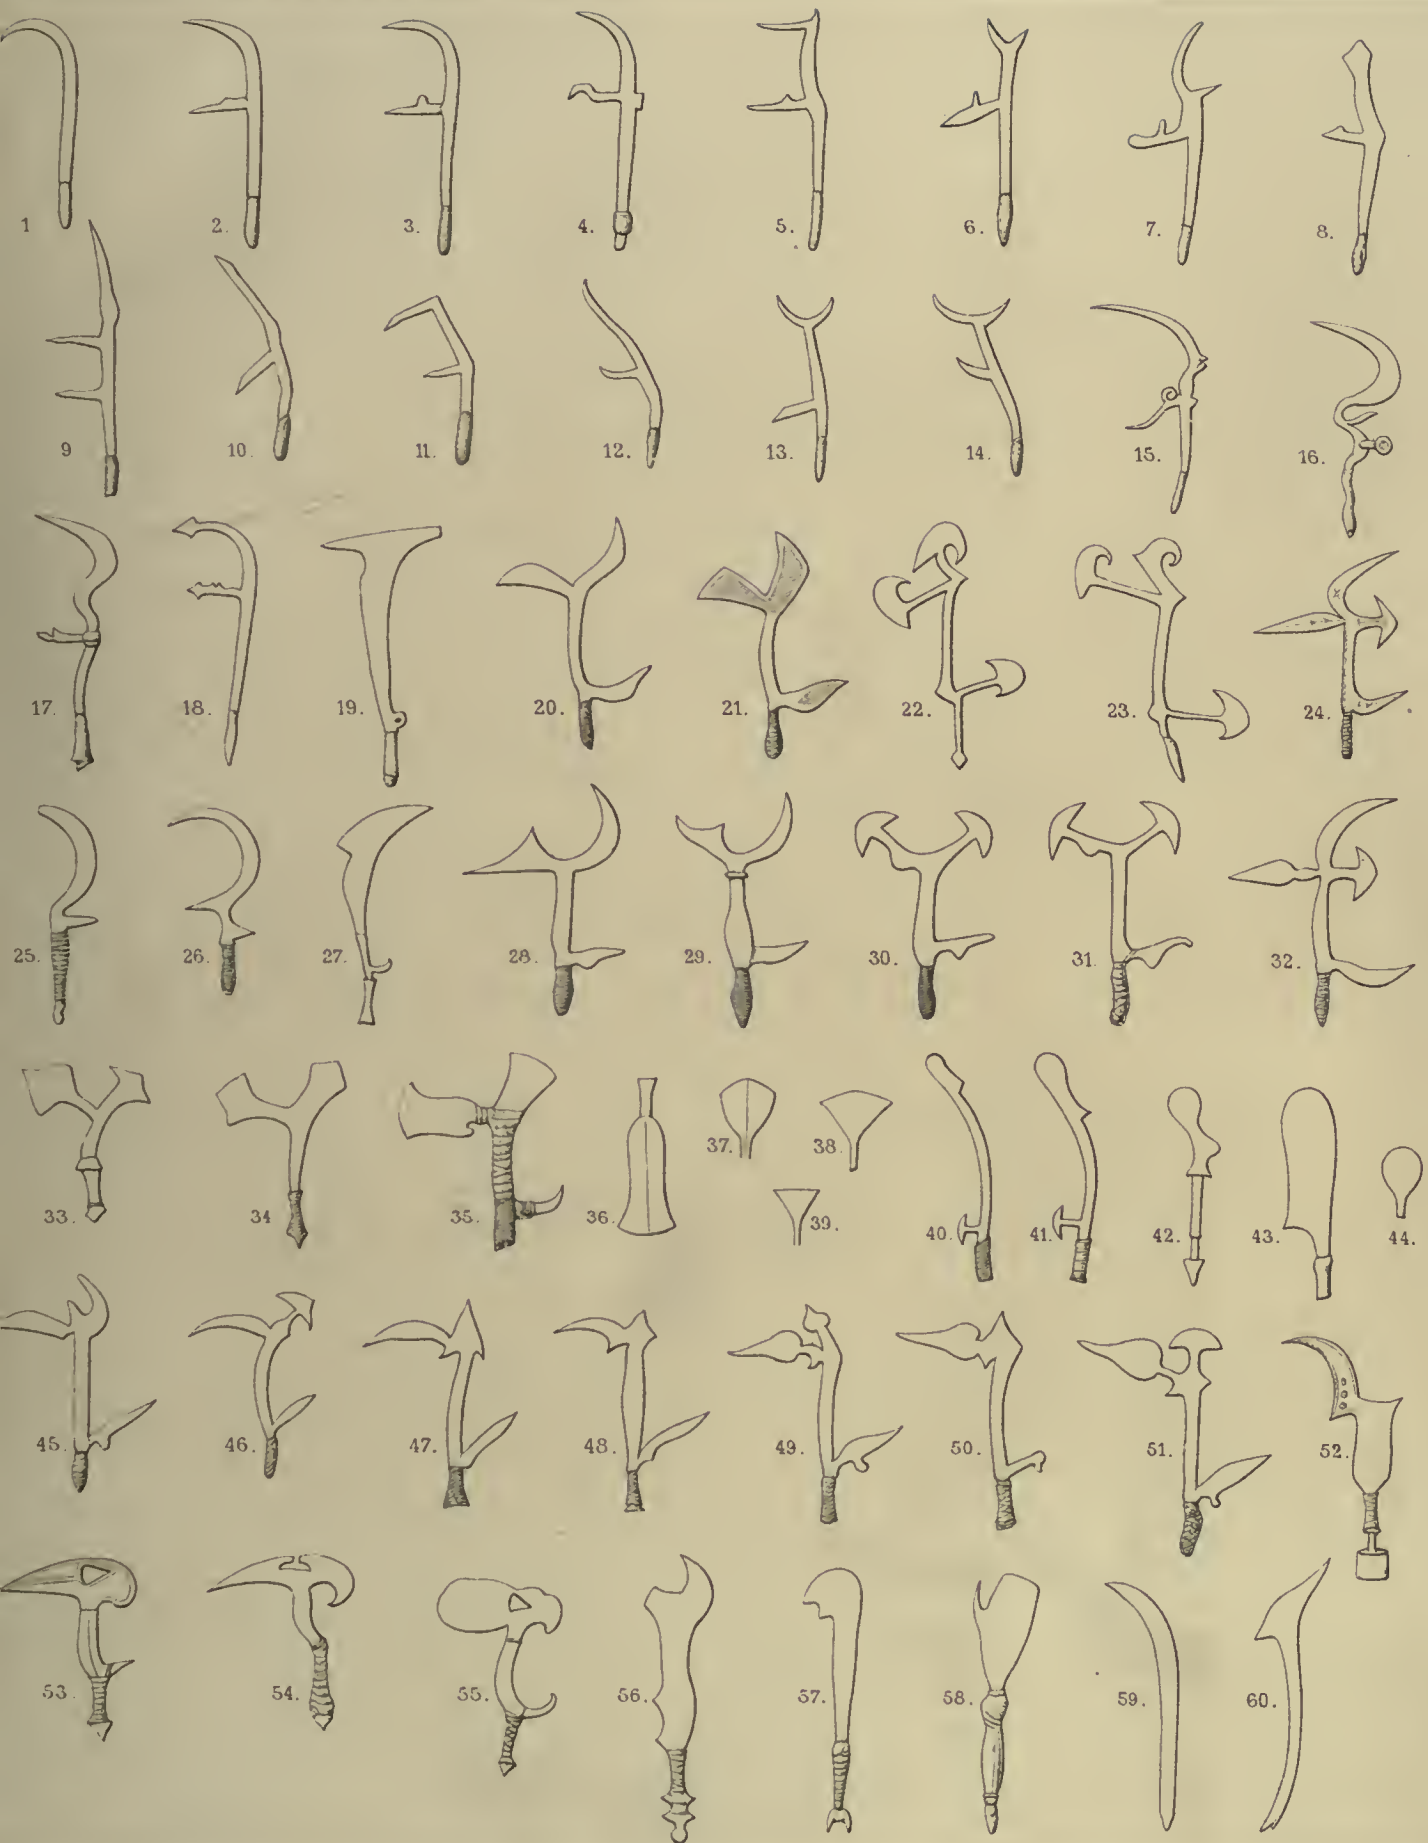 1
2.
3.
4.
5.
6.
7.
8.
9
10.
11.
12.
13.
14.
15.
16.
17.
18.
19.
20.
21.
22.
23.
24.
25.
26.
27.
28.
29.
30.
31.
32.
33.
34
35.
36.
37.
38.
39.
40.
41.
42.
43.
44.
45.
46.
47.
48.
49.
50.
51.
52.
53.
54.
55.
56.
57.
58.
59.
60.